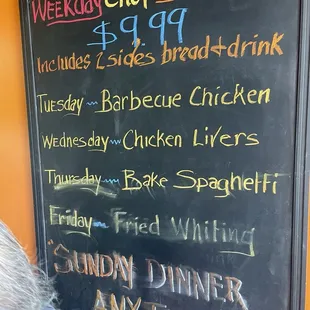 WEEKday Chef
$9.99
Includes 2 sides bread + drink
Tuesday ~ Barbecue Chicken
Wednesday ~ Chicken Livers
Thursday ~ Bake Spaghetti
Friday ~ Fried Whiting
"SUNDAY DINNER